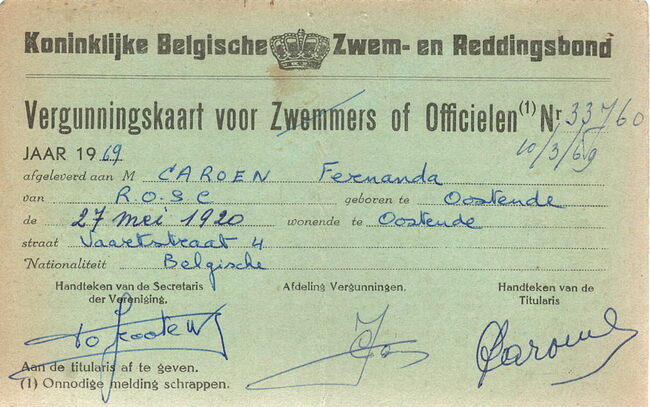 Koninklijke Belgische Zwem- en Reddingsbond
Vergunningskaart voor Zwemmers of Officielen (1) Nr 33760
JAAR 1969 10/3/69
afgeleverd aan M CAROEN Fernanda
van R.O.S.C geboren te Oostende
de 27 mei 1920 wonende te Oostende
straat Vaartstraat 4
Nationaliteit Belgische
Handteken van de Secretaris Afdeling Vergunningen. Handteken van de
der Vereniging. Titularis
Caroen
Aan de titularis af te geven.
(1) Onnodige melding schrappen.